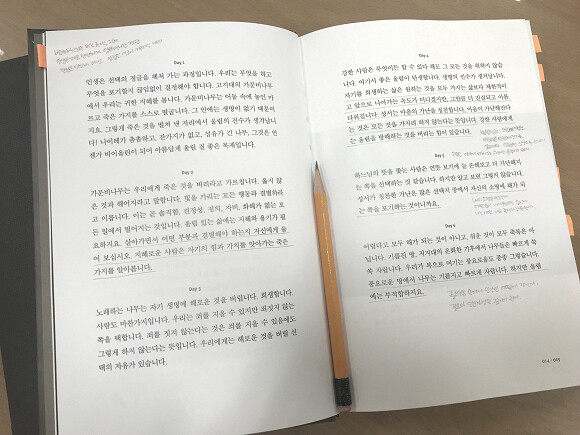 Day 1
인생은 선택의 정글을 헤쳐 가는 과정입니다. 우리는 무엇을 하고
무엇을 포기할지 끊임없이 결정해야 합니다. 고지대의 가문비나무
에서 우리는 귀한 지혜를 봅니다. 가문비나무는 어둠 속에 놓인 마
르고 죽은 가지를 스스로 떨굽니다. 그 안에는 생명이 없기 때문이
지요. 그렇게 죽은 것을 벌어 낸 자리에서 울림의 진수가 생겨납니
다! 나이테가 촘촘하고, 잔가지가 없고, 섬유가 긴 나무, 그것은 언
젠가 바이올린이 되어 아름답게 울릴 질 좋은 목재입니다.
Day 2
가문비나무는 우리에게 죽은 것을 버리라고 가르칩니다. 옳지 않
은 것과 헤어지라고 말합니다. 빛을 가리는 모든 행동과 결별하라
고 이릅니다. 이는 곧 솔직함, 진정성, 정의, 자비, 화해가 없는 모
든 일에서 멀어지는 것입니다. 울림 있는 삶에는 지혜와 용기가 필
요하지요. 살아가면서 어떤 부분과 결별해야 하는지 자신에게 물
어 보십시오. 지혜로운 사람은 자기의 힘과 가치를 앗아가는 죽은
가지를 알아봅니다.
Day 3
노래하는 나무는 자기 생명에 해로운 것을 버립니다. 희생합니다.
사람도 마찬가지입니다. 우리는 죄를 지을 수 있지만 죄짓지 않는
쪽을 택합니다. 죄를 짓지 않는다는 것은 죄를 지을 수 있음에도
그렇게 하지 않는다는 뜻입니다. 우리에게는 해로운 것을 버릴 선
택의 자유가 있습니다.
Day 4
강한 사람은 무엇이든 할 수 있다 해도 그 모든 것을 취하지 않습
니다. 여기서 좋은 울림이 탄생합니다. 생명의 진수가 생겨납니다.
자기를 희생하는 삶은 원하는 것을 모두 가지는 삶보다 제한적이
고 앞으로 나아가는 속도가 더디겠지만, 그만큼 더 진실되고 아름
다워집니다. 성서는 마음의 가난을 칭찬합니다. 마음이 가난해진다
는 것은 모든 것을 가지려 하지 않는다는 뜻입니다. 강한 사람에게
는 울림을 방해하는 것을 버리는 힘이 있습니다.
Day 5
하느님의 뜻을 좇는 사람은 언뜻 보기에 늘 손해보고 더 가난해지
는 쪽을 선택하는 것 같습니다. 하지만 알고 보면 그렇지 않습니다.
성서가 칭찬한 가난은 많은 선택지 중에서 자신의 소명에 해가 되
는 쪽을 포기하는 것이니까요.
Day 6
어렵다고 모두 해가 되는 것이 아니고, 쉬운 것이 모두 축복은 아
닙니다. 기름진 땅, 저지대의 온화한 기후에서 나무들은 빠르게 쑥
쑥 자랍니다. 우리가 복으로 여기는 풍요로움도 종종 그렇습니다.
풍요로운 땅에서 나무는 기름지고 빠르게 자랍니다. 하지만 울림
에는 부적합하지요.
015